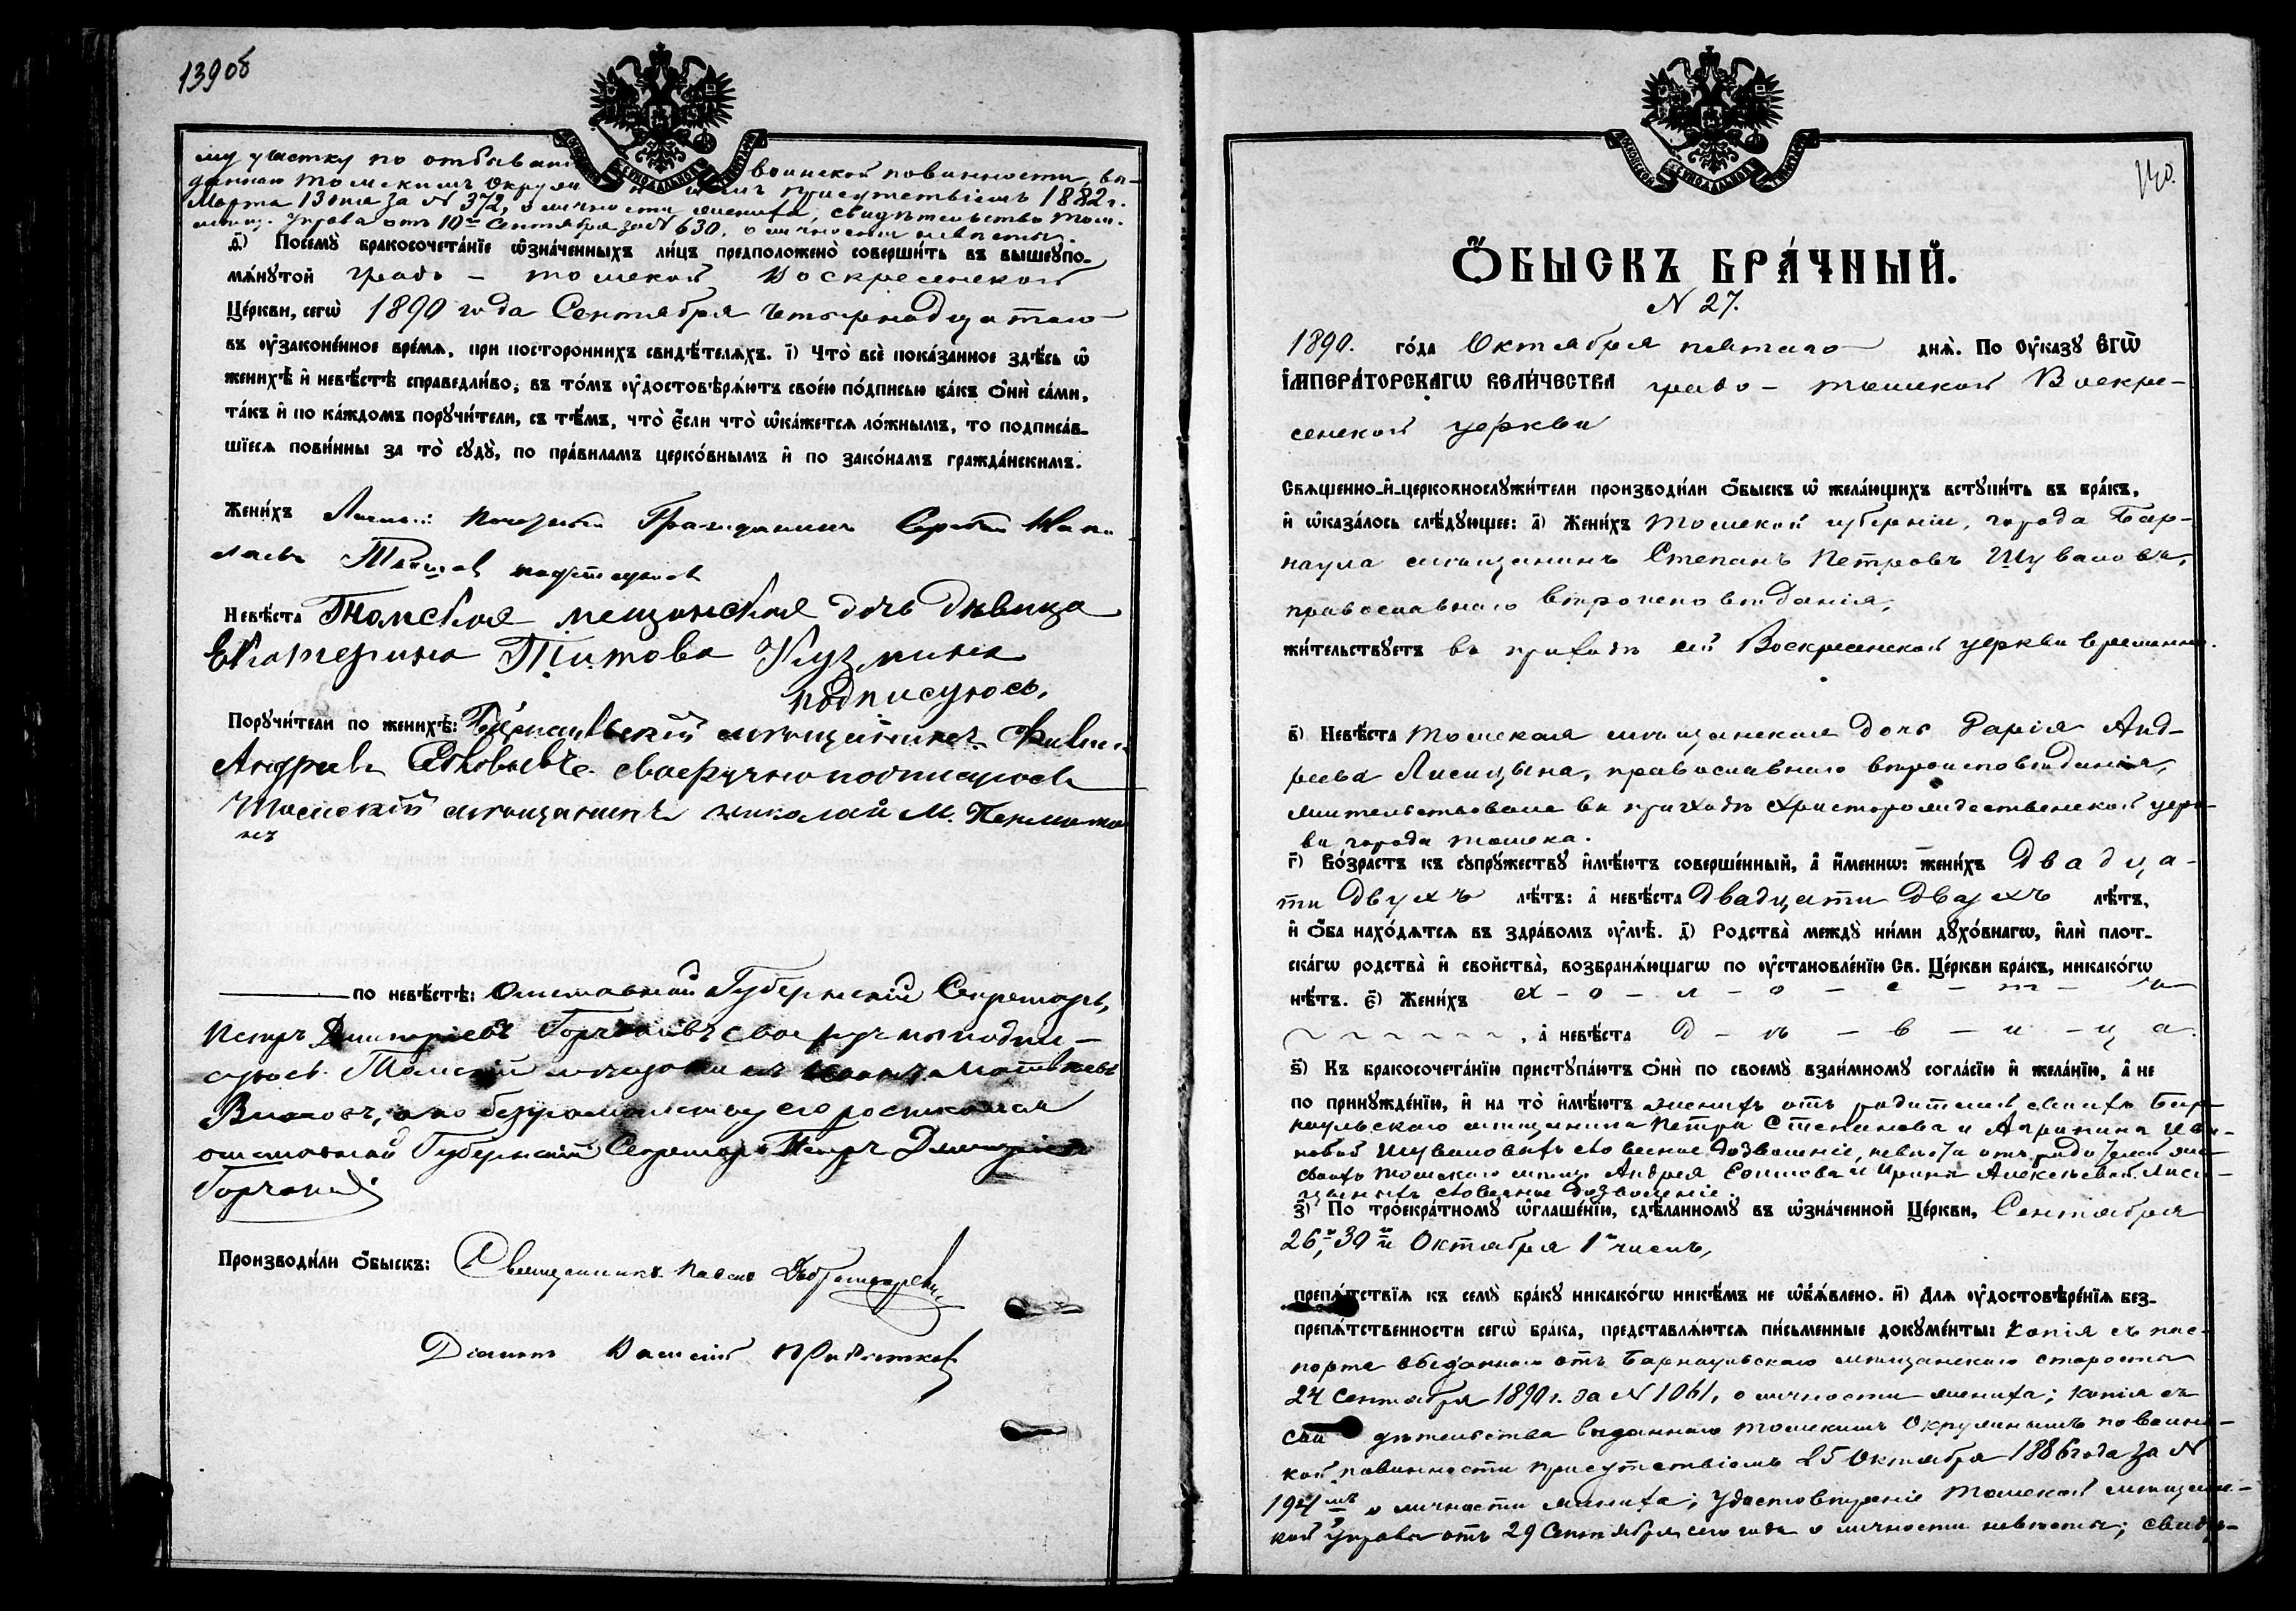 139 об
му участку по отбыван воинской повинности, вы-
данная Томскимъ Окружн присутствіемъ 1882 г.
Марта 13 дня за N 372, о личности жениха, свидѣтельство Том.
мѣщ. управа отъ 10го Сентября за N 630, о личности невѣсты.
ѳ҃) Посемꙋ̀ бракосочета́нїе ѡ҆зна́ченныхъ ли́цъ предположено̀ соверши́ть въ вышеꙋпо-
мѧ́нꙋтой градо - Томской Воскресенской
Це́ркви, сегѡ̀ 1890 года Сентября четырнадцатаго
въ ᲂу҆законе́нное вре́мѧ, при посторо́ннихъ свидѣ́телѧхъ. і҃) Что̀ всѐ пока́занное здѣ́сь ѡ҆
женихѣ̀ и҆ невѣ́стѣ справедли́во, въ то́мъ ᲂу҆достовѣрѧ́ютъ свое́ю по́дписью ка́къ ѻ҆нѝ са́ми,
та́къ и҆ по ка́ждомъ порꙋчи́тели, съ тѣ́мъ, что̀ є҆́сли что̀ ѡ҆ка́жетсѧ ло́жнымъ, то подписа́в-
шїесѧ пови́нны за то̀ сꙋдꙋ̀, по пра́виламъ церко́внымъ и҆ по зако́намъ гражда́нскимъ.
Жени́хъ Личный Почетный Гражданинъ Сергей
Невѣ́ста Томская мещанская дочь дѣвица
Екатерина Титова Кузмина
подписуюсь,
Порꙋчи́тели по женихѣ̀: мѣщанинъ
Андреевъ своеручно подписуюсь
Томский мѣщанинъ Николай М.
по невѣ́стѣ: Отставной Губернскій Секретарь,
Петръ Дмитріевъ своеручно подпи-
суюсь. Томский мѣщанинъ Матвѣевъ
а по безграмотству его росписался
отставной Губернскій Секретарь Петръ Дмитріевъ
Производи́ли ѻ҆́быскъ: Священникъ Павелъ
Діаконъ Василій
140.
Ѻ҆́БЫСКЪ БРА́ЧНЫЙ.
N 27.
1890. го́да Октября пятаго днѧ̀. По Оу҆ка́зꙋ Є҆ГѠ̀
І҆МПЕРА́ТОРСКАГѠ ВЕЛИ́ЧЕСТВА градо - Томской Воскре-
сенской церкви
Свѧщенно-и҆-церковнослꙋжи́тели производи́ли ѻ҆́быскъ ѡ҆ жела́ющихъ встꙋпи́ть въ бра́къ,
и҆ ѡ҆каза́лось слѣ́дꙋющее: а҃) Жени́хъ Томской губерніи, города Бар-
наула мѣщанинъ Степанъ Петровъ Шуваловъ,
православнаго вѣроисповѣданія,
жи́тельствꙋетъ въ приходѣ сей Воскресенской церкви временно.
в҃) Невѣ́ста Томская мѣщанская дочь Дарія Анд-
реева Лисицына, православнаго вѣроисповѣданія,
жительствовала въ приходѣ Христорождественской церк-
ви города Томска.
г҃) Во́зрастъ къ сꙋпрꙋ́жествꙋ и҆мѣ́ютъ соверше́нный, а҆ и҆́менно: жени́хъ двадца-
ти двухъ лѣ́тъ: а҆ невѣ́ста двадцати двухъ лѣ́тъ,
и҆ ѻ҆́ба нахо́дѧтсѧ въ здра́вомъ ᲂу҆мѣ̀. д҃) Родства̀ междꙋ̀ ни́ми дꙋхо́внагѡ, и҆лѝ плот-
ска́гѡ родства̀ и҆ свойства̀, возбранѧ́ющагѡ по ᲂу҆становле́нїю Св. Це́ркви бра́къ, никако́гѡ
нѣ́тъ. є҃) Жени́хъ х - о - л - о - с - т - ъ
, а҆ невѣ́ста д - ѣ - в - и - ц а.
ѕ҃) Къ бракосочета́нїю пристꙋпа́ютъ ѻ҆нѝ по своемꙋ̀ взаи́мномꙋ согла́сїю и҆ жела́нїю, а҆ не
по принꙋжде́нїю, и҆ на то̀ и҆мѣ́ютъ женихъ отъ родителей своихъ Бар-
наульскаго мѣщанина Петра Степанова и Агрипины Ива-
новой Шуваловыхъ словесное дозволеніе, невѣста отъ родителей же
своихъ Томскаго мѣщ. Андрея Есипова и Ирины Алексѣевой Лиси-
цыныхъ словесное дозволеніе.
з҃) По троекра́тномꙋ ѡ҆глаше́нїю, сдѣ́ланномꙋ въ ѡ҆зна́ченной Це́ркви, Сентября
26го, 30го и Октября 1го числъ,
препѧ́тствїѧ къ семꙋ̀ бра́кꙋ никако́гѡ никѣ́мъ не ѡ҆б̾ѧ́влено. и҃) Для ᲂу҆достовѣре́нїѧ без-
препѧ́тственности сегѡ̀ бра́ка, представлѧ́ютсѧ пи́сьменные докꙋме́нты: копія съ пас-
порта выданнаго отъ Барнаульскаго мѣщанскаго старосты
24 Сентября 1890 г. за N 1061, о личности жениха; копія съ
сви дѣтельства выданнаго Томскимъ Окружнымъ по воинс-
кой повинности присутствіемъ 25 Октября 1886 года за N
194мъ о личности жениха; удостовѣреніе Томской мѣщанс-
кой Управы отъ 29 Сентября сего года о личности невѣсты; свидѣ-